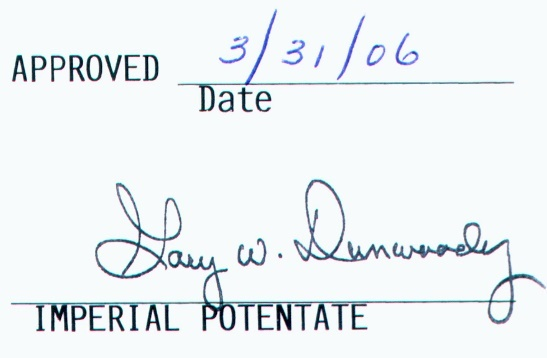 APPROVED 3/31/06
Date
Gary W. Dunwoody
IMPERIAL POTENTATE